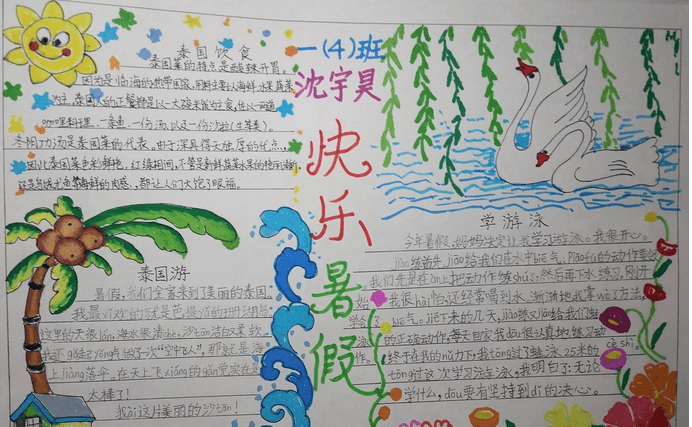 泰国饮食
泰国菜的特点是酸辣开胃。
因为是临海的热带国家,用料主要以海鲜水果蔬菜
为主,泰国人的正餐都是以一大碗米饭为主食,佐以一道
咖喱料理、一条鱼、一份汤,以及一份沙拉(生菜类)。
冬阴功汤是泰国菜的代表,由于深具得天独厚的优点,
因此泰国菜色彩鲜艳,红绿相间,不管是新鲜蔬菜水果的艳丽
海鲜的肉感,都让人们大饱了眼福。
一(4)班
沈宇昊
快乐暑假
泰国游
暑假,我们全家来到了美丽的泰国。
我最xǐ欢的就是芭提yǎ的
这里的天很lán,海水很清chè,沙tān洁白又柔软。
我还做了一次“空中飞人”,那就是海
上jiàng落伞。在天上飞xiáng的gǎn觉实在
太棒了!
我ài这片美丽的沙tān!
学游泳
今年暑假,妈妈决定让我学习游泳。我很开心。
liàn练首先,jiāo给我们在水中biē气、
我们先是在àn上把动作练shú,然后再下水练习。刚开
始,我很hài怕,还经常喝到水,渐渐地我掌wò了方法,
学会了biē气。jiē下来的几天,jiāo练又jiāo给我们蛙
泳的正确动作,每天回家我dōu很认真地练习动
作。终于在我的nǔ力下,我tōng过了蛙泳25米的
cè shì。
tōng过这次学习游泳,我明白了:无论
学什么,dōu要有坚持到dǐ的决心。